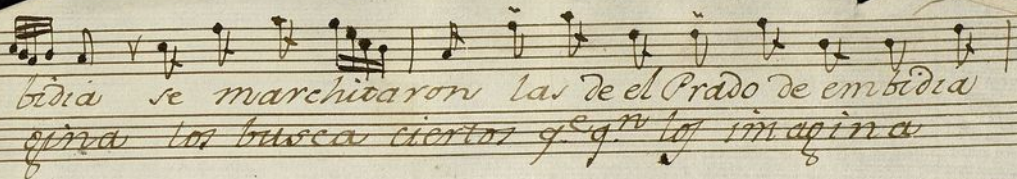 bidia se marchitaron las de el Prado de embidia
gina los busca ciertos q.e q.n los imagina